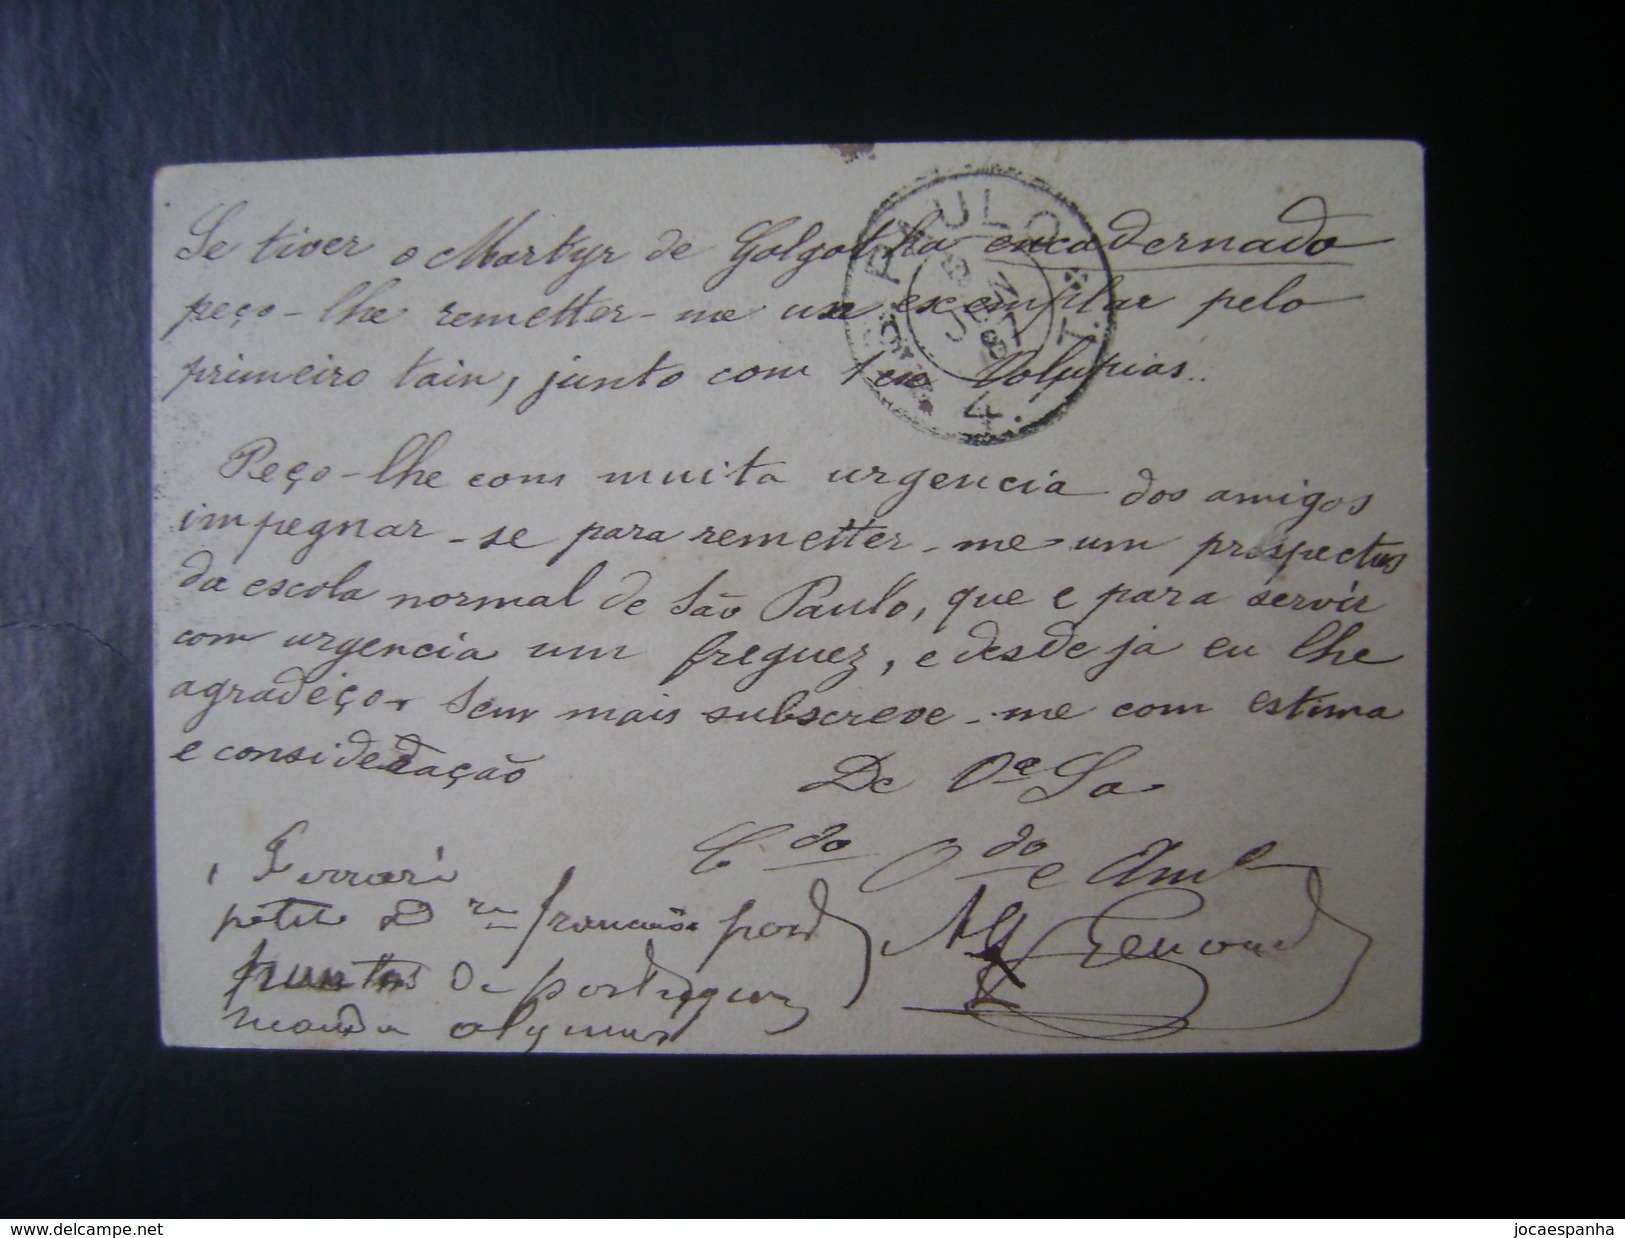 Se tiver o Martyr de Golgotha encadernado
peço-lhe remetter-me um exemplar pelo
primeiro tain, junto com 1 Volupias..
Peço-lhe com muita urgencia dos amigos
impegnar-se para remetter-me um prospectus
da escola normal de São Paulo, que e para servir
com urgencia um freguez, e desde ja eu lhe
agradeiço, Sem mais subscreve-me com estima
e consideração
De Va Sa
C do O do e Am
Ferrari
de portuguez
manda
PAULO
JUN
87
1.
4.
delcampe.net
jocaespanha